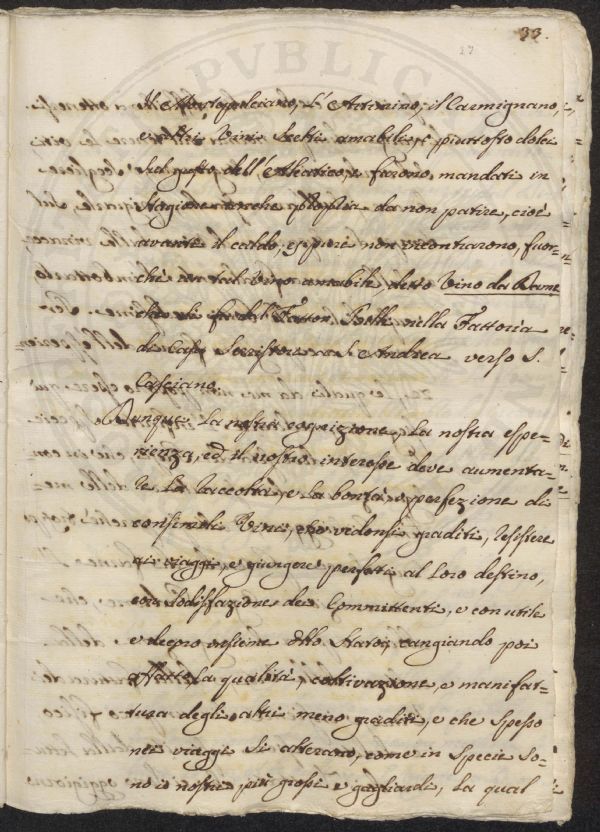 33.
17
Il Montepulciano, L'Artimino, il Carmignano,
e altri Vini Scelti amabili, e piuttosto dolci
sul gusto dell'Aleatico, e furono mandati in
stagione anche da non patire, cioè
avanti il caldo, eppure non incontrarono, fuor-
chè un tal Vino amabile detto Vino da Dame
che si fa dal Fattor Betti nella Fattoria
di Casa a S. Andrea verso S.
Casciano.
Dunque La nostra cognizione, La nostra espe-
rienza, ed il nostro interesse deve aumenta-
re La raccolta, e La bontà, e perfezione di
consimili Vini, che vedonsi graditi, resistere
ai viaggi, e giungere perfetti al Loro destino,
con sodisfazione dei Committenti, e con utile
e decoro insieme dello Stato, cangiando poi
affatto La qualità, coltivazione, e manifat-
tura degli altri meno graditi, e che spesso
nei viaggi si alterano, come in specie so-
no i nostri più grossi e gagliardi, La qual